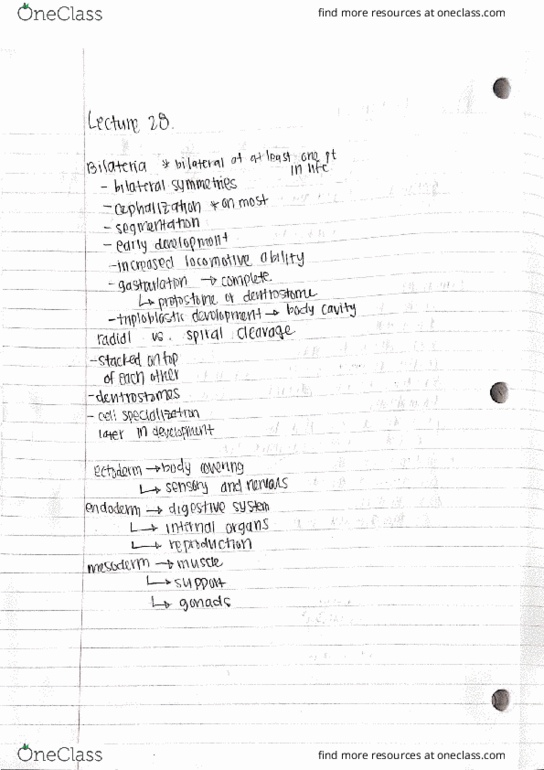 OneClass
find more resources at oneclass.com
Lecture 28.
Bilateria * bilateral at at least one pt
in life
- bilateral symmetries
- cephalization * on most
- segmentation
- early development
- increased locomotive ability
- gastrulation → complete
↳ protostome or dentrostome
- triploblastic development → body cavity
radial vs. spiral cleavage
- stacked on top
of each other
- dentrostomes
- cell specialization
later in development
ectoderm → body covering
↳ sensory and nervous
endoderm → digestive system
↳ internal organs
↳ reproduction
mesoderm → muscle
↳ support
↳ gonads
OneClass
find more resources at oneclass.com